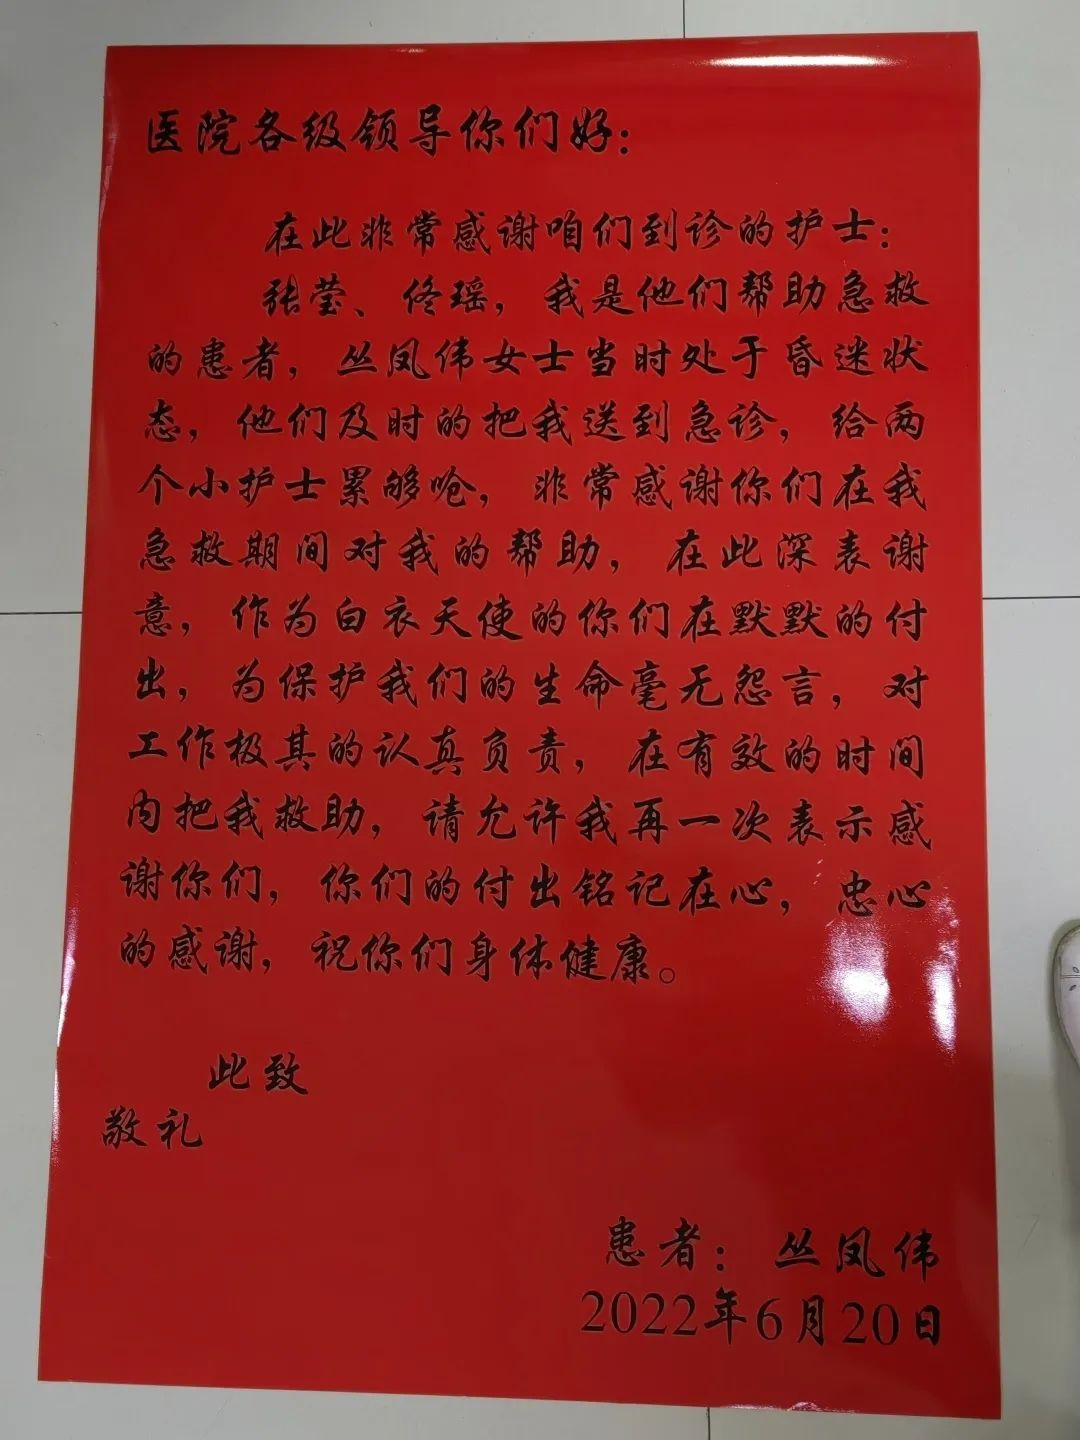 医院各级领导你们好：
在此非常感谢咱们到诊的护士：
张莹、佟瑶，我是他们帮助急救
的患者，丛凤伟女士当时处于昏迷状
态，他们及时的把我送到急诊，给两
个小护士累够呛，非常感谢你们在我
急救期间对我的帮助，在此深表谢
意，作为白衣天使的你们在默默的付
出，为保护我们的生命毫无怨言，对
工作极其的认真负责，在有效的时间
内把我救助，请允许我再一次表示感
谢你们，你们的付出铭记在心，忠心
的感谢，祝你们身体健康。
此致
敬礼
患者：丛凤伟
2022年6月20日